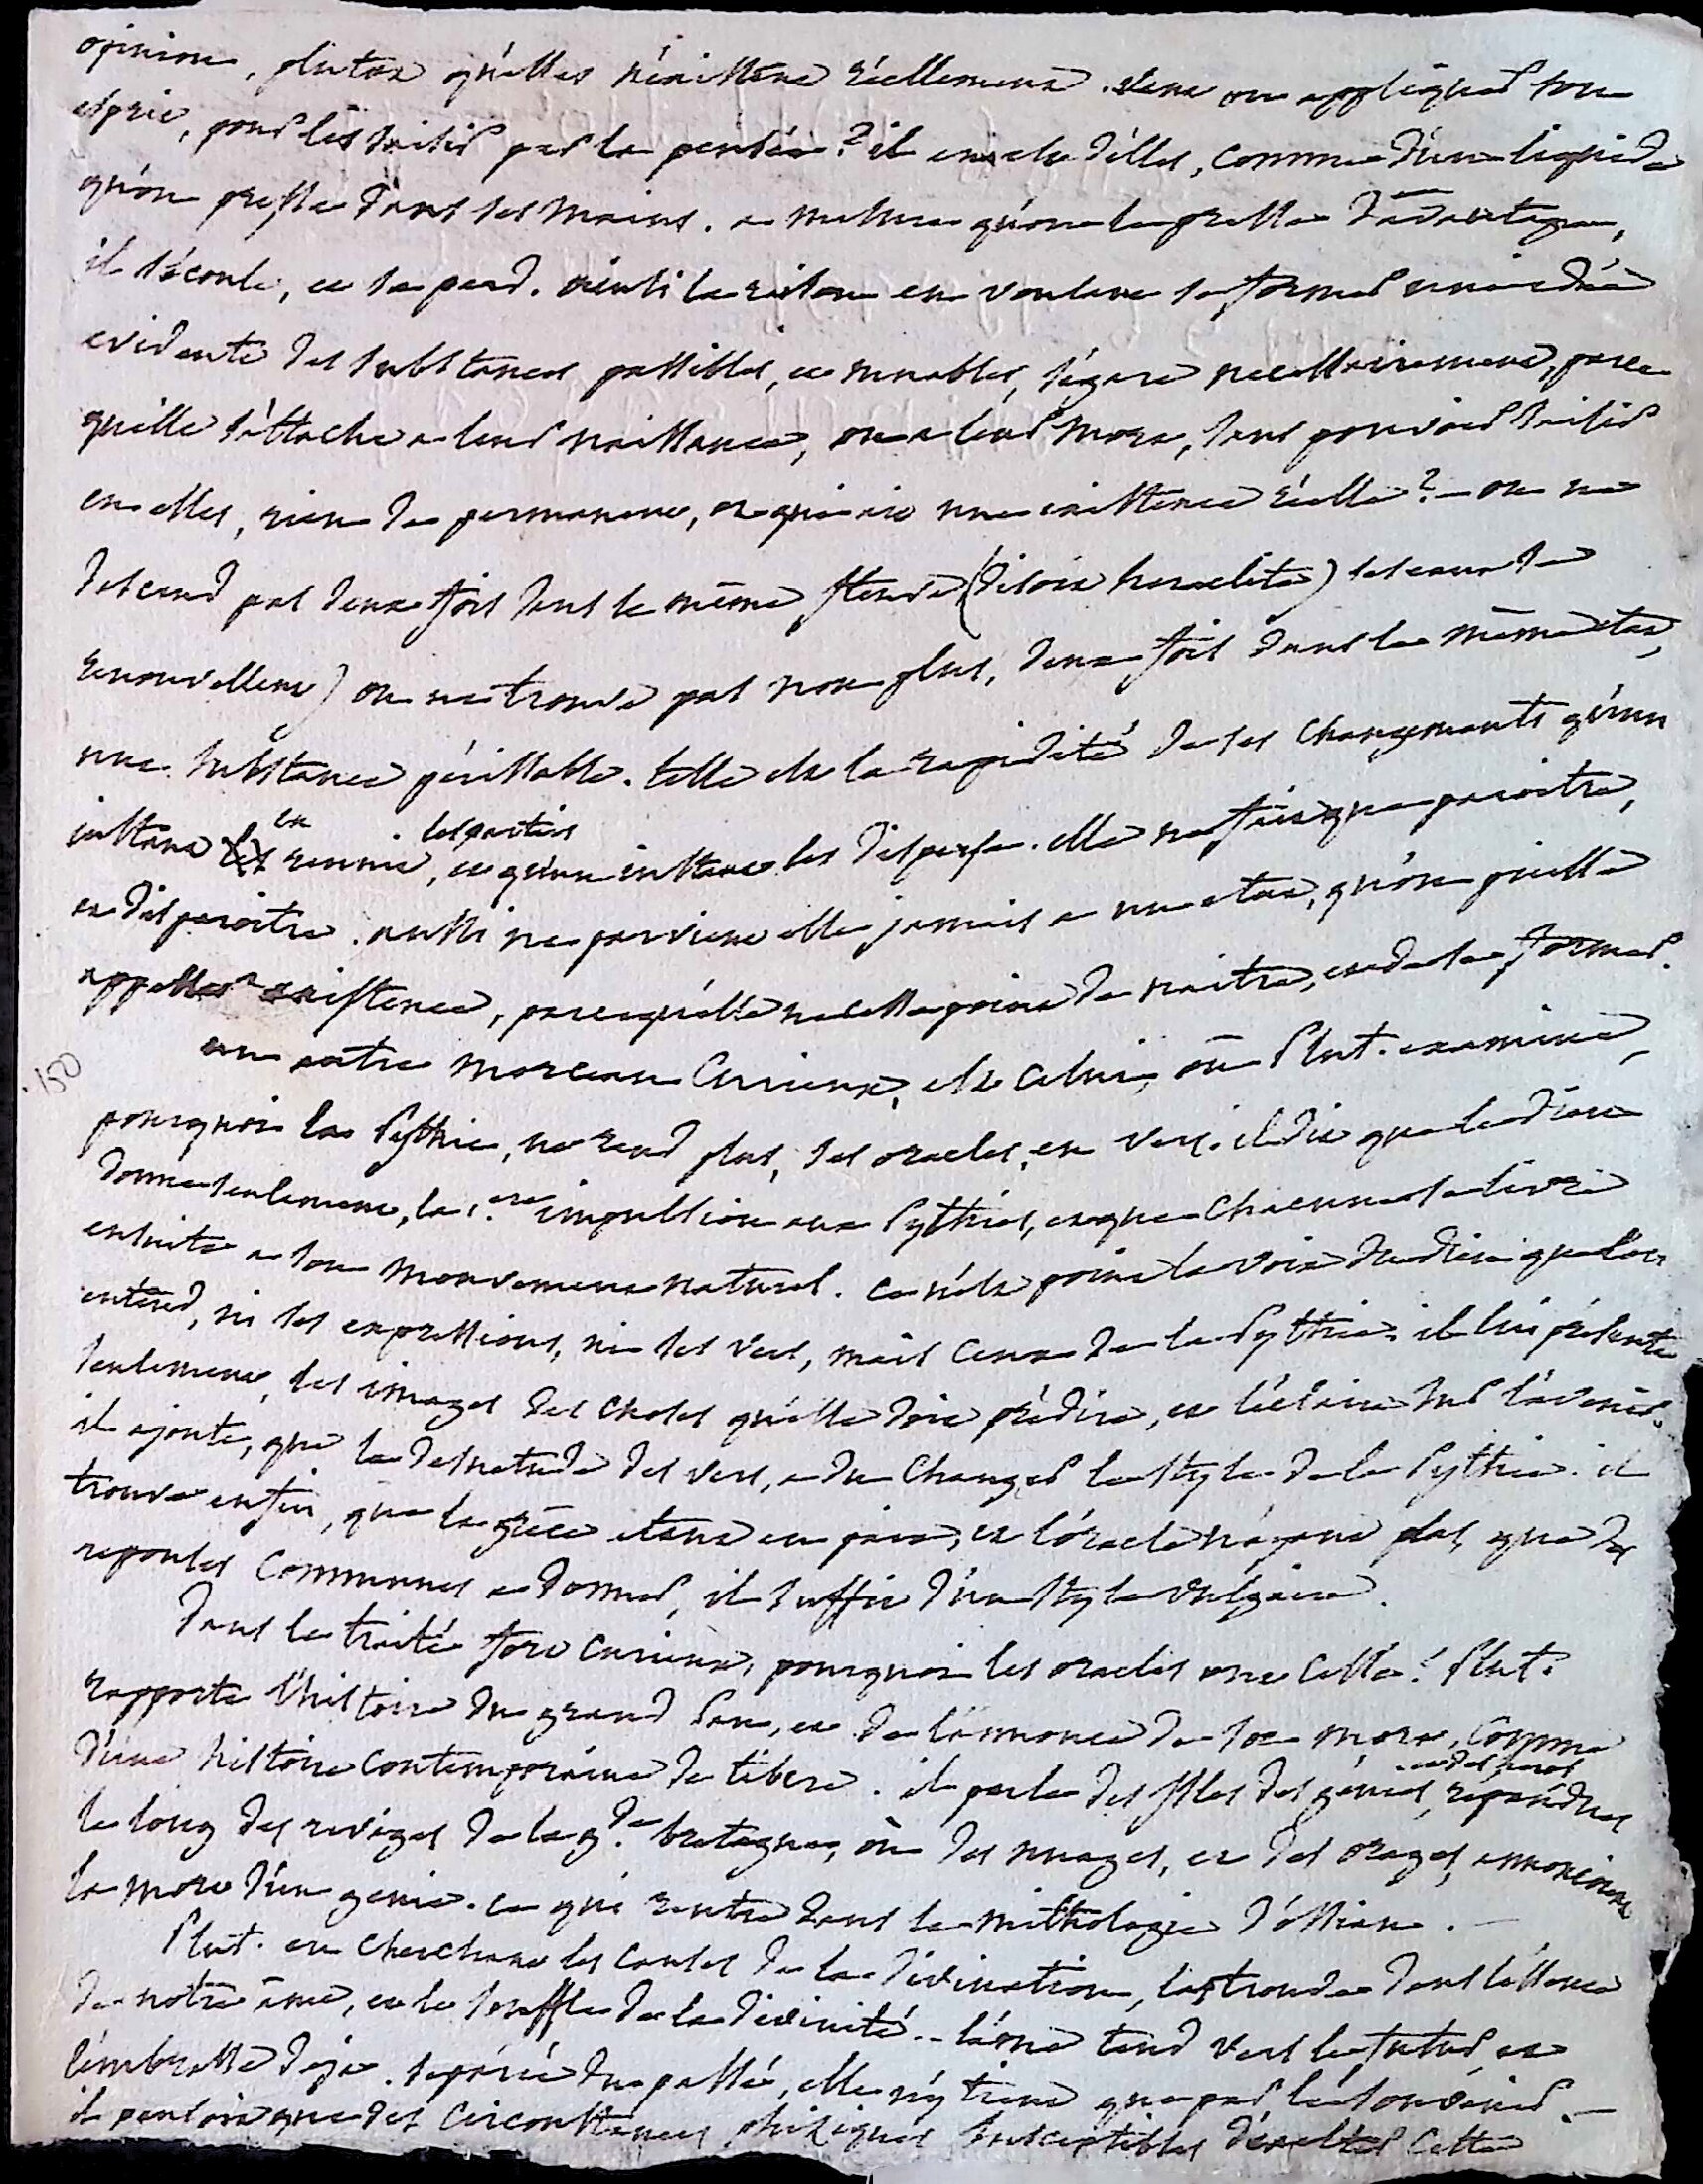 opinion, plutot qu'elles n'existent réellement. veut on appliquer son
esprit, pour les saisir par la pensée ? il en est d'elles, comme d'un liquide
qu'on presse dans ses mains. a mesure qu'on le presse d'avantage,
il s'écoule, et se perd. ainsi la raison en voulant se former une idée
evidente des substances passibles, et muables, s'égare necessairement, parce
qu'elle s'attache a leur naissance, ou a leur mort, sans pouvoir saisir
en elles, rien de permanent, et qui ait une existence réelle ? - on ne
descend pas deux fois dans le même fleuve (disoit heraclite) ses eaux se
renouvellent) on ne trouve pas non plus, deux fois dans le même etat,
une substance périssable. telle est la rapidité de ses changements qu'un
instant en reunit, et qu'un instant les disperse. elle ne fait que paroitre,
les parties
et disparoitre. aussi ne parvient elle jamais a un etat, qu'on puisse
appeller existence, parcequ'elle ne cesse point de naitre, et de se former.
150
un autre morceau curieux, est celui, où Plut. examine,
pourquoi la Pythie, ne rend plus, ses oracles, en vers. il dit que le dieu
donne seulement, la 1.ere impulsion aux Pythies, et que chacune se livre
ensuite a son mouvement naturel. ce n'est point la voix du dieu que l'on
entend, ni ses expressions, ni ses vers, mais ceux de la Pythie. il lui présente
seulement, les images des choses qu'elle doit prédire, et l'éclaire sur l'avenir.
il ajoute, que la desuetude des vers, a du changer le style de la Pythie. il
trouve enfin, que la grèce etant en paix, et l'oracle n'ayant plus que des
reponses communes a donner, il suffit d'un style vulgaire.
Dans le traité fort curieux, pourquoi les oracles ont cessé ? Plut.
rapporte l'histoire du grand Pan, et de l'annonce de sa mort, comme
d'une histoire contemporaine de tibere. il parle des isles des génies, répandues
et des heros
le long des rivages de la g.de bretagne, où des nuages, et des orages, annoncoient
la mort d'un genie. ce qui rentre dans la mithologie d'ossian. -
Plut. en cherchant les causes de la divination, les trouve dans l'essence
de notre âme, et le souffle de la divinité. - l'âme tend vers le futur, et
l'embrasse deja. separée du passé, elle n'y tient que par le souvenir. -
il pensoit que des circonstances phisiques susceptibles d'exalter cette